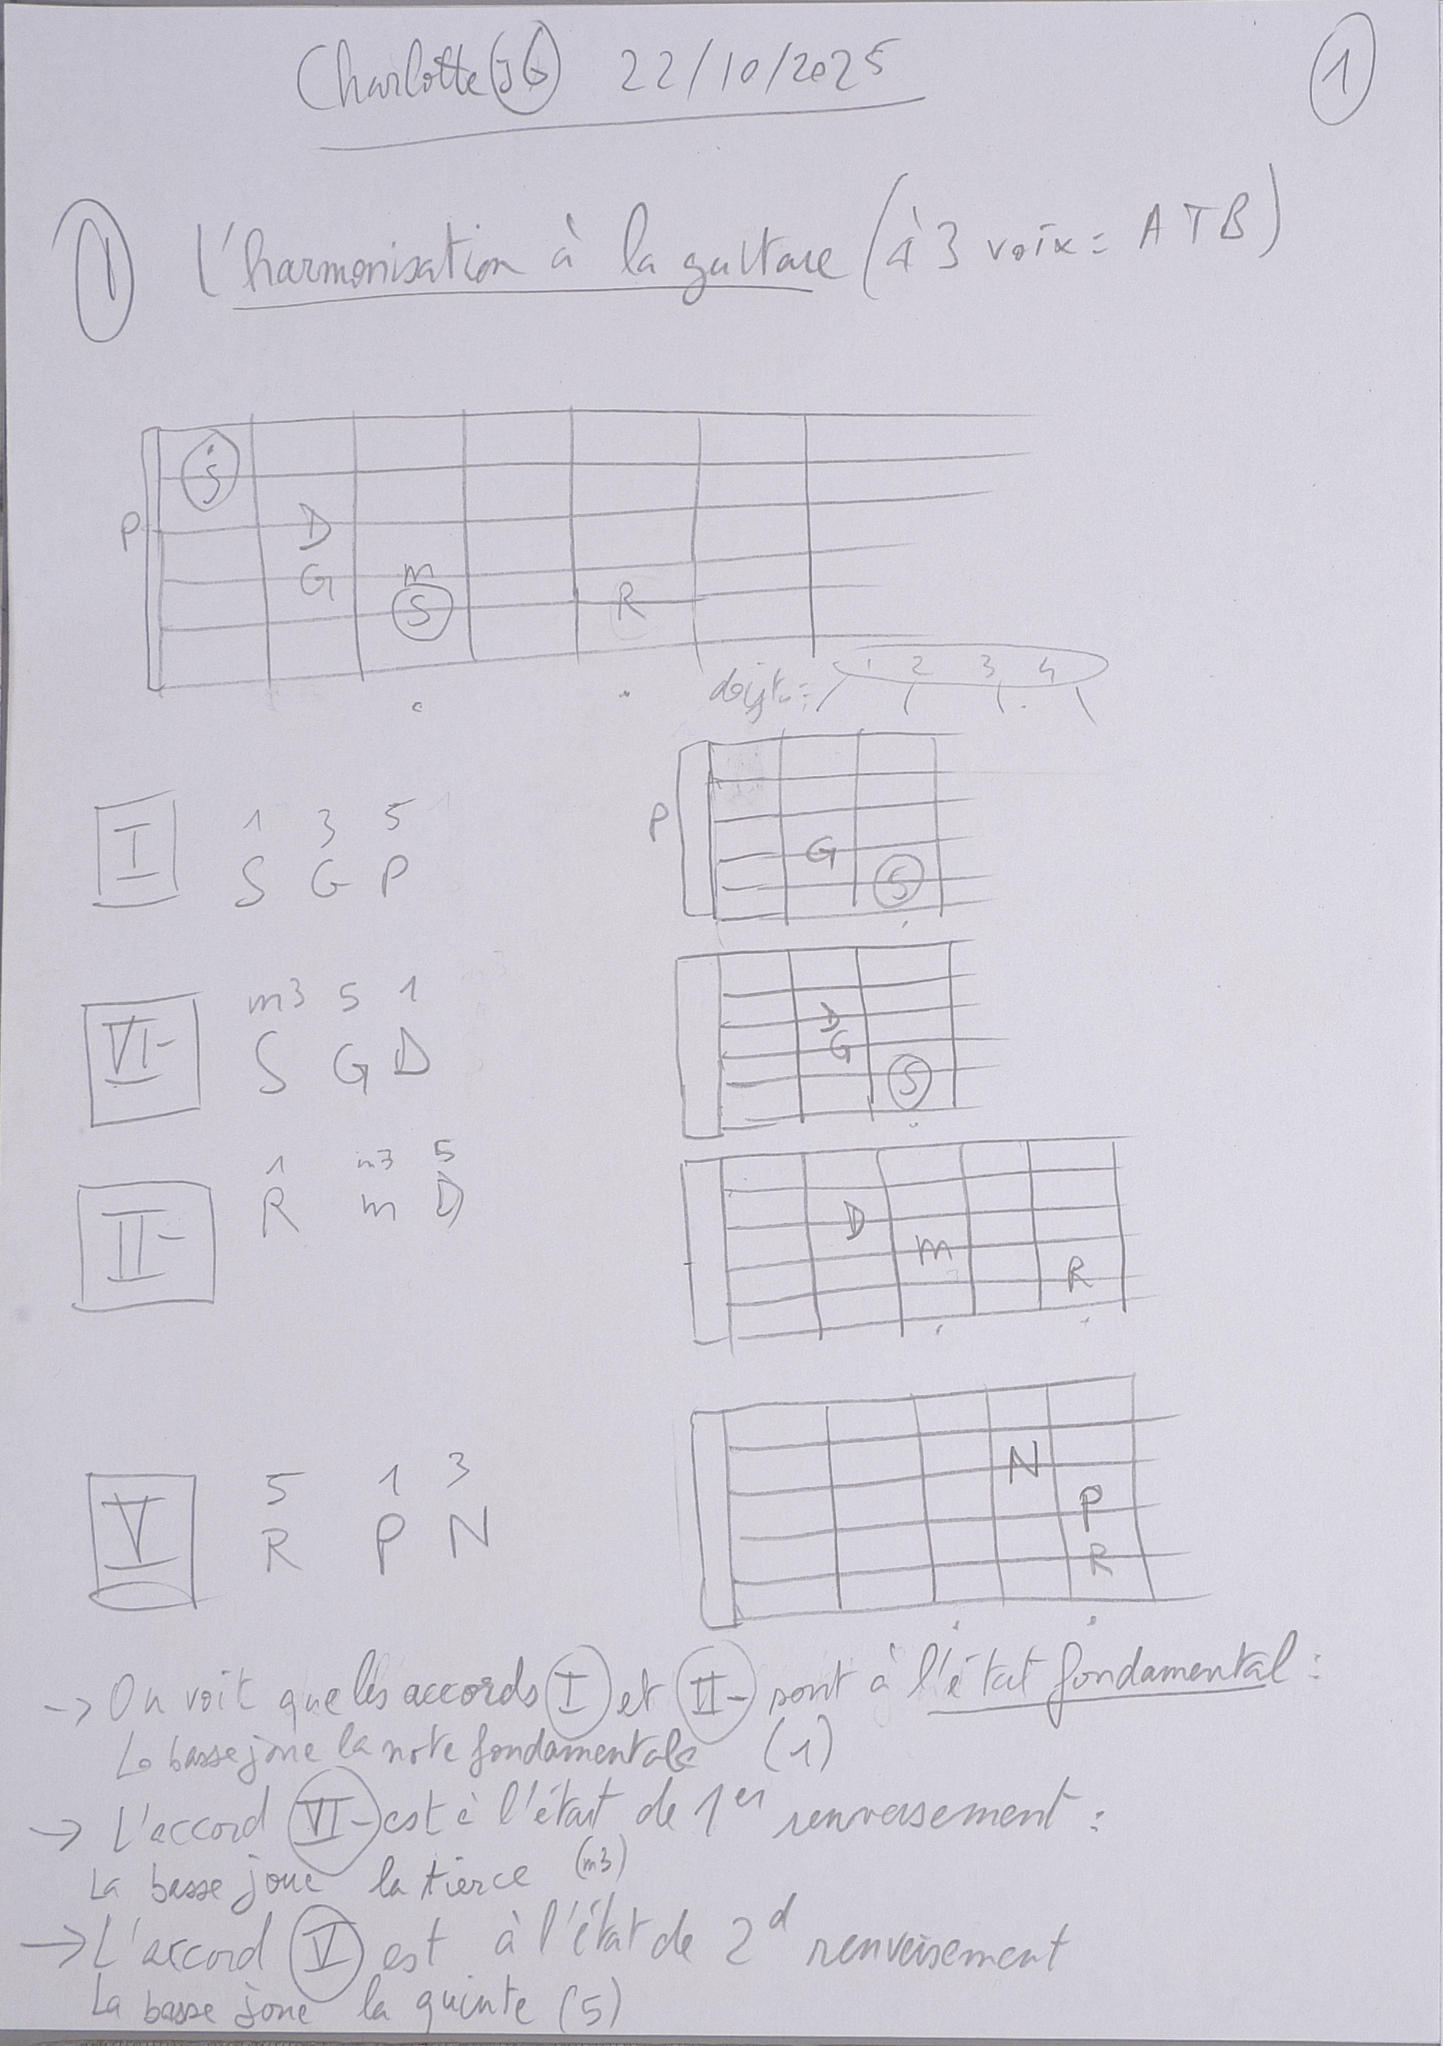 Charlotte 22/10/2025
1
1 L'harmonisation à la guitare (à 3 voix = ATB)
S
P D
G m
S R
doigts = 1 2 3 4
I
1 3 5
S G P
P G S
VI-
m3 5 1
S G D
D
G
S
II-
1 m3 5
R m D
D
m
R
V
5 1 3
R P N
N
P
R
-> On voit que les accords I et II- sont à l'état fondamental :
La basse joue la note fondamentale (1)
-> L'accord VI- est à l'état de 1er renversement :
La basse joue la tierce (m3)
-> L'accord V est à l'état de 2d renversement
La basse joue la quinte (5)